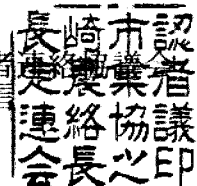 長崎市認
定農業者
連絡協議
会長之印